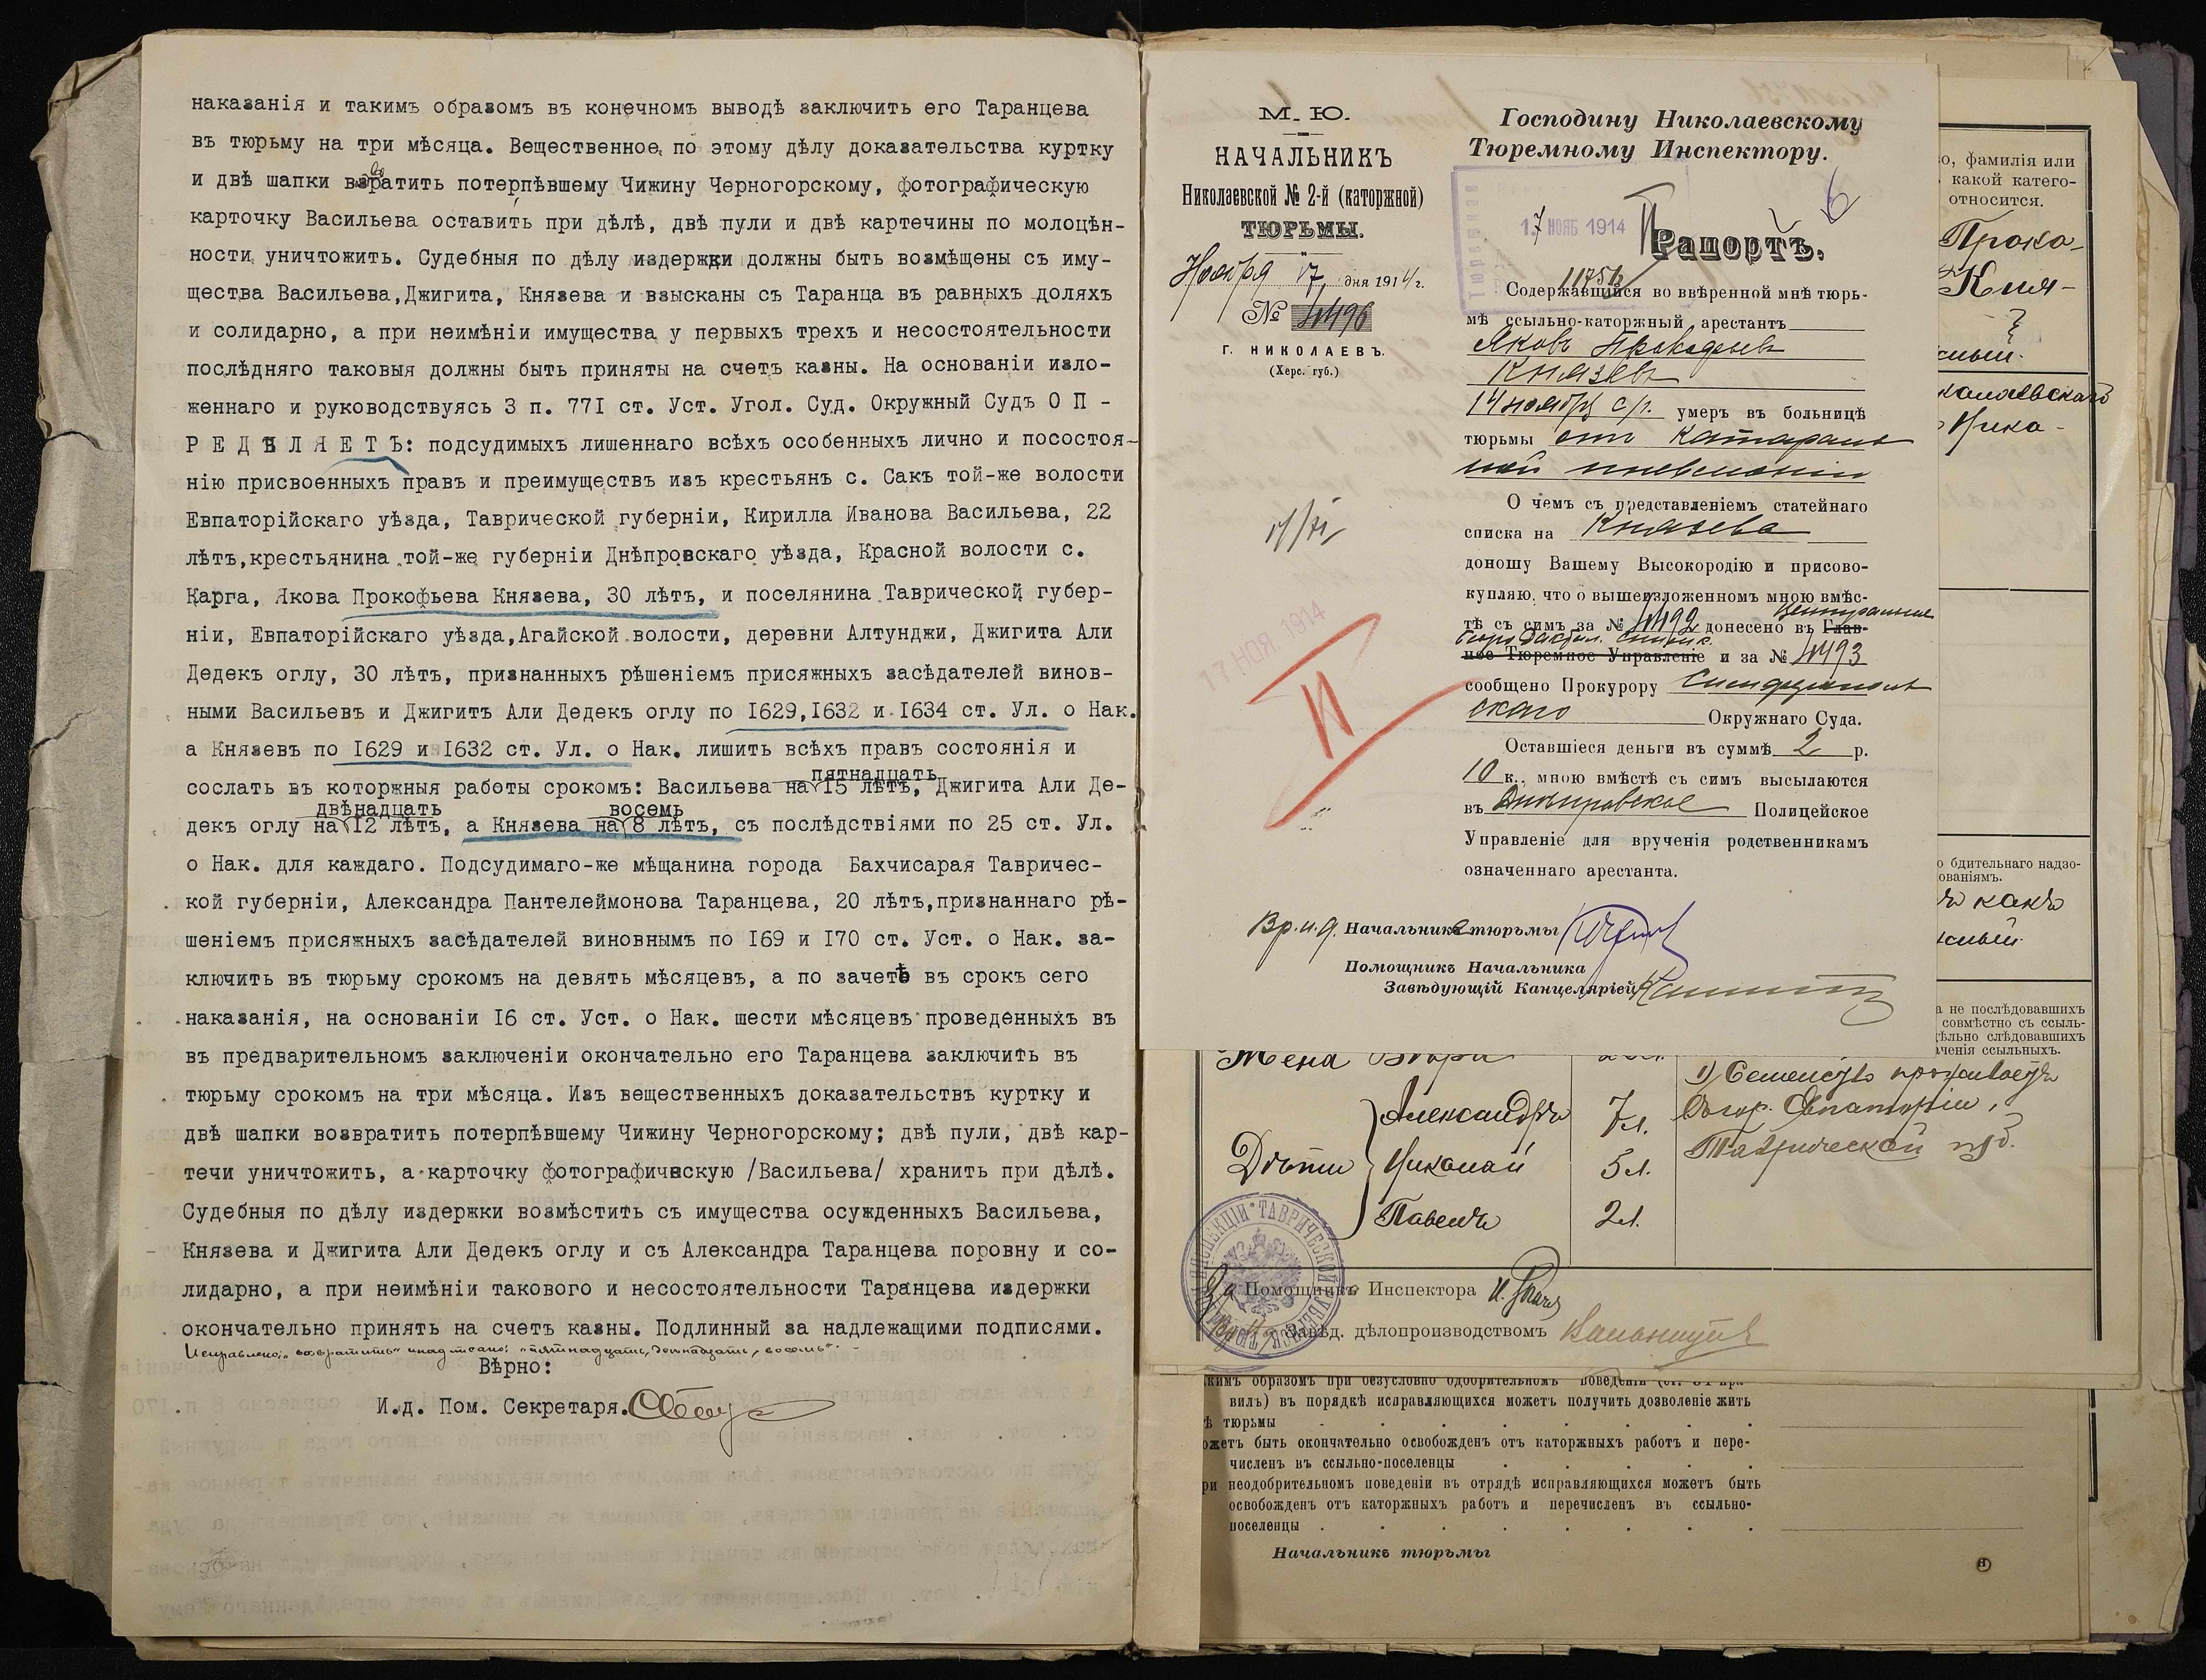 наказанія и такимъ образомъ въ конечномъ выводѣ заключить его Таранцева
въ тюрьму на три мѣсяца. Вещественное по этому дѣлу доказательства куртку
и двѣ шапки взвратить потерпѣвшему Чижину Черногорскому, фотографическую
карточку Васильева оставить при дѣлѣ, двѣ пули и двѣ картечины по молоцѣн-
ности уничтожить. Судебныя по дѣлу издержки должны быть возмѣщены съ иму-
щества Васильева,Джигита, Князева и взысканы съ Таранца въ равныхъ доляхъ
и солидарно, а при неимѣніи имущества у первыхъ трехъ и несостоятельности
послѣдняго таковыя должны быть приняты на счетъ казны. На основаніи изло-
женнаго и руководствуясь 3 п. 771 ст. Уст. Угол. Суд. Окружный Судъ О П -
Р Е Д Ѣ Л Я Е Т Ъ: подсудимыхъ лишеннаго всѣхъ особенныхъ лично и посостоя-
нію присвоенныхъ правъ и преимуществъ изъ крестьянъ с. Сакъ той-же волости
Евпаторійскаго уѣзда, Таврической губерніи, Кирилла Иванова Васильева, 22
лѣтъ,крестьянина той-же губерніи Днѣпровскаго уѣзда, Красной волости с.
Карга, Якова Прокофьева Князева, 30 лѣтъ, и поселянина Таврической губер-
ніи, Евпаторійскаго уѣзда,Агайской волости, деревни Алтунджи, Джигита Али
Дедекъ оглу, 30 лѣтъ, признанныхъ рѣшеніемъ присяжныхъ засѣдателей винов-
ными Васильевъ и Джигитъ Али Дедекъ оглу по 1629,1632 и 1634 ст. Ул. о Нак.
а Князевъ по 1629 и 1632 ст. Ул. о Нак. лишить всѣхъ правъ состоянія и
пятнадцать
сослать въ которжныя работы срокомъ: Васильева на 15 лѣтъ, Джигита Али Де-
двѣнадцать восемь
декъ оглу на 12 лѣтъ, а Князева на 8 лѣтъ, съ послѣдствіями по 25 ст. Ул.
о Нак. для каждаго. Подсудимаго-же мѣщанина города Бахчисарая Тавричес-
кой губерніи, Александра Пантелеймонова Таранцева, 20 лѣтъ,признаннаго рѣ-
шеніемъ присяжныхъ засѣдателей виновнымъ по 169 и 170 ст. Уст. о Нак. за-
ключить въ тюрьму срокомъ на девять мѣсяцевъ, а по зачетѣ въ срокъ сего
наказанія, на основаніи 16 ст. Уст. о Нак. шести мѣсяцевъ проведенныхъ въ
въ предварительномъ заключеніи окончательно его Таранцева заключить въ
тюрьму срокомъ на три мѣсяца. Изъ вещественныхъ доказательствъ куртку и
двѣ шапки возвратить потерпѣвшему Чижину Черногорскому; двѣ пули, двѣ кар-
течи уничтожить, а карточку фотографическую /Васильева/ хранить при дѣлѣ.
Судебныя по дѣлу издержки возмѣстить съ имущества осужденныхъ Васильева,
Князева и Джигита Али Дедекъ оглу и съ Александра Таранцева поровну и со-
лидарно, а при неимѣніи такового и несостоятельности Таранцева издержки
окончательно принять на счетъ казны. Подлинный за надлежащими подписями.
Исправлено: "возвратить" надписано: "пятнадцать, двѣнадцать, восемь".
Вѣрно:
И.д. Пом. Секретаря.
М. Ю.
НАЧАЛЬНИКЪ
Николаевской № 2-й (каторжной)
ТЮРЬМЫ.
Ноября 17 дня 1914 г.
№ 4496
Г. НИКОЛАЕВЪ.
(Херс. губ.)
17 НОЯ. 1914
II
Господину Николаевскому
Тюремному Инспектору.
17 НОЯБ 1914
6
Рапортъ.
Содержавшійся во ввѣренной мнѣ тюрь-
мѣ ссыльно-каторжный арестантъ
Яковъ Прокофьевъ
Князевъ
14 ноября с/г. умеръ въ больницѣ
тюрьмы отъ катараль
ной пневмоніи
О чемъ съ представленіемъ статейнаго
списка на Князева
доношу Вашему Высокородію и присово-
купляю, что о вышеизложенномъ мною вмѣс-
Центральное
тѣ съ симъ за № 4492 донесено въ Глав-
бюро дактил.
ное Тюремное Управленіе и за № 4493
сообщено Прокурору Симферополь
скаго Окружнаго Суда.
Оставшіеся деньги въ суммѣ 2 р.
10 к. мною вмѣстѣ съ симъ высылаются
въ Днѣпровское Полицейское
Управленіе для врученія родственникамъ
означеннаго арестанта.
Вр.и.д. Начальника тюрьмы
Помощникъ Начальника
Завѣдующій Канцеляріей
о, фамилія или
какой катего-
относится.
Проко-
Кня-
о бдительнаго надзо-
ованіямъ.
какъ
а не послѣдовавшихъ
совмѣстно съ ссыль-
дѣльно слѣдовавшихъ
ченія ссыльныхъ.
Жена
Дѣти
Александръ 7 л.
Николай 5 л.
Павелъ 2 л.
1) Семейство проживаетъ
въ гор. Евпаторіи,
Таврической губ.
ИНСПЕКЦІИ * ТАВРИЧЕСКОЙ ГУБЕРНСК. ТЮРЕМ
За Помощникъ Инспектора
Завѣд. дѣлопроизводствомъ
кимъ образомъ при безусловно одобрительномъ поведеніи
вилъ) въ порядкѣ исправляющихся можетъ получить дозволеніе жить
ѣ тюрьмы
ожетъ быть окончательно освобожденъ отъ каторжныхъ работъ и пере-
численъ въ ссыльно-поселенцы
ри неодобрительномъ поведеніи въ отрядѣ исправляющихся можетъ быть
освобожденъ отъ каторжныхъ работъ и перечисленъ въ ссыльно-
поселенцы
Начальникъ тюрьмы